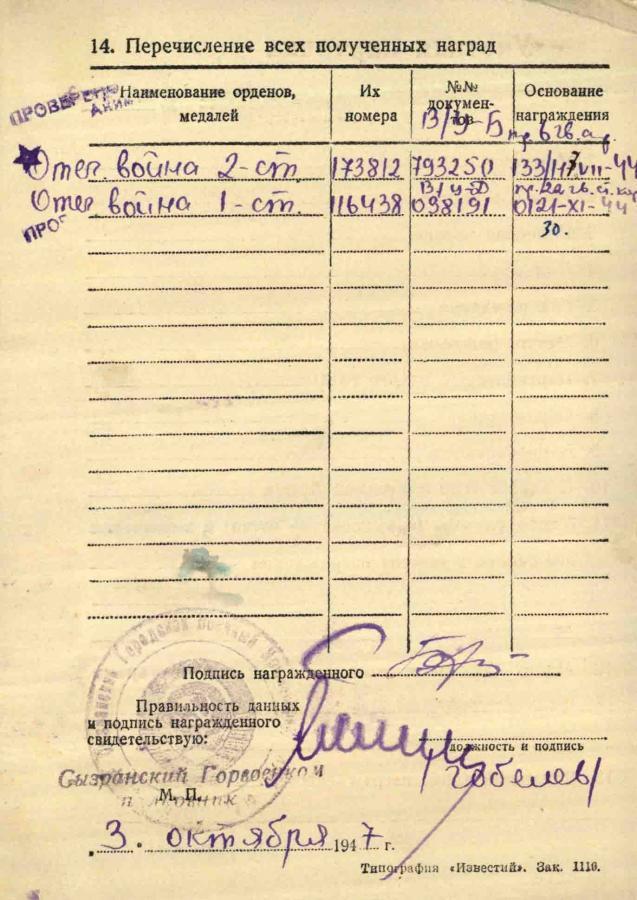 14. Перечисление всех полученных наград
ПРОВЕРЕНО
Наименование орденов,
медалей
Их
номера
№№
докумен-
тов
Основание
награждения
В/У-Б пр. 6 гв. а.
Отеч. война 2-ст. 173812 793250 133/н 7/VII-44
Отеч. война 1-ст. 116438 038191 0121-XI-44
ПРОВ
30.
Подпись награжденного
Правильность данных
и подпись награжденного
свидетельствую:
должность и подпись
Сызранский Горвоенком
полковник
М. П.
3. октября 1947 г.
Типография «Известий». Зак. 1116.